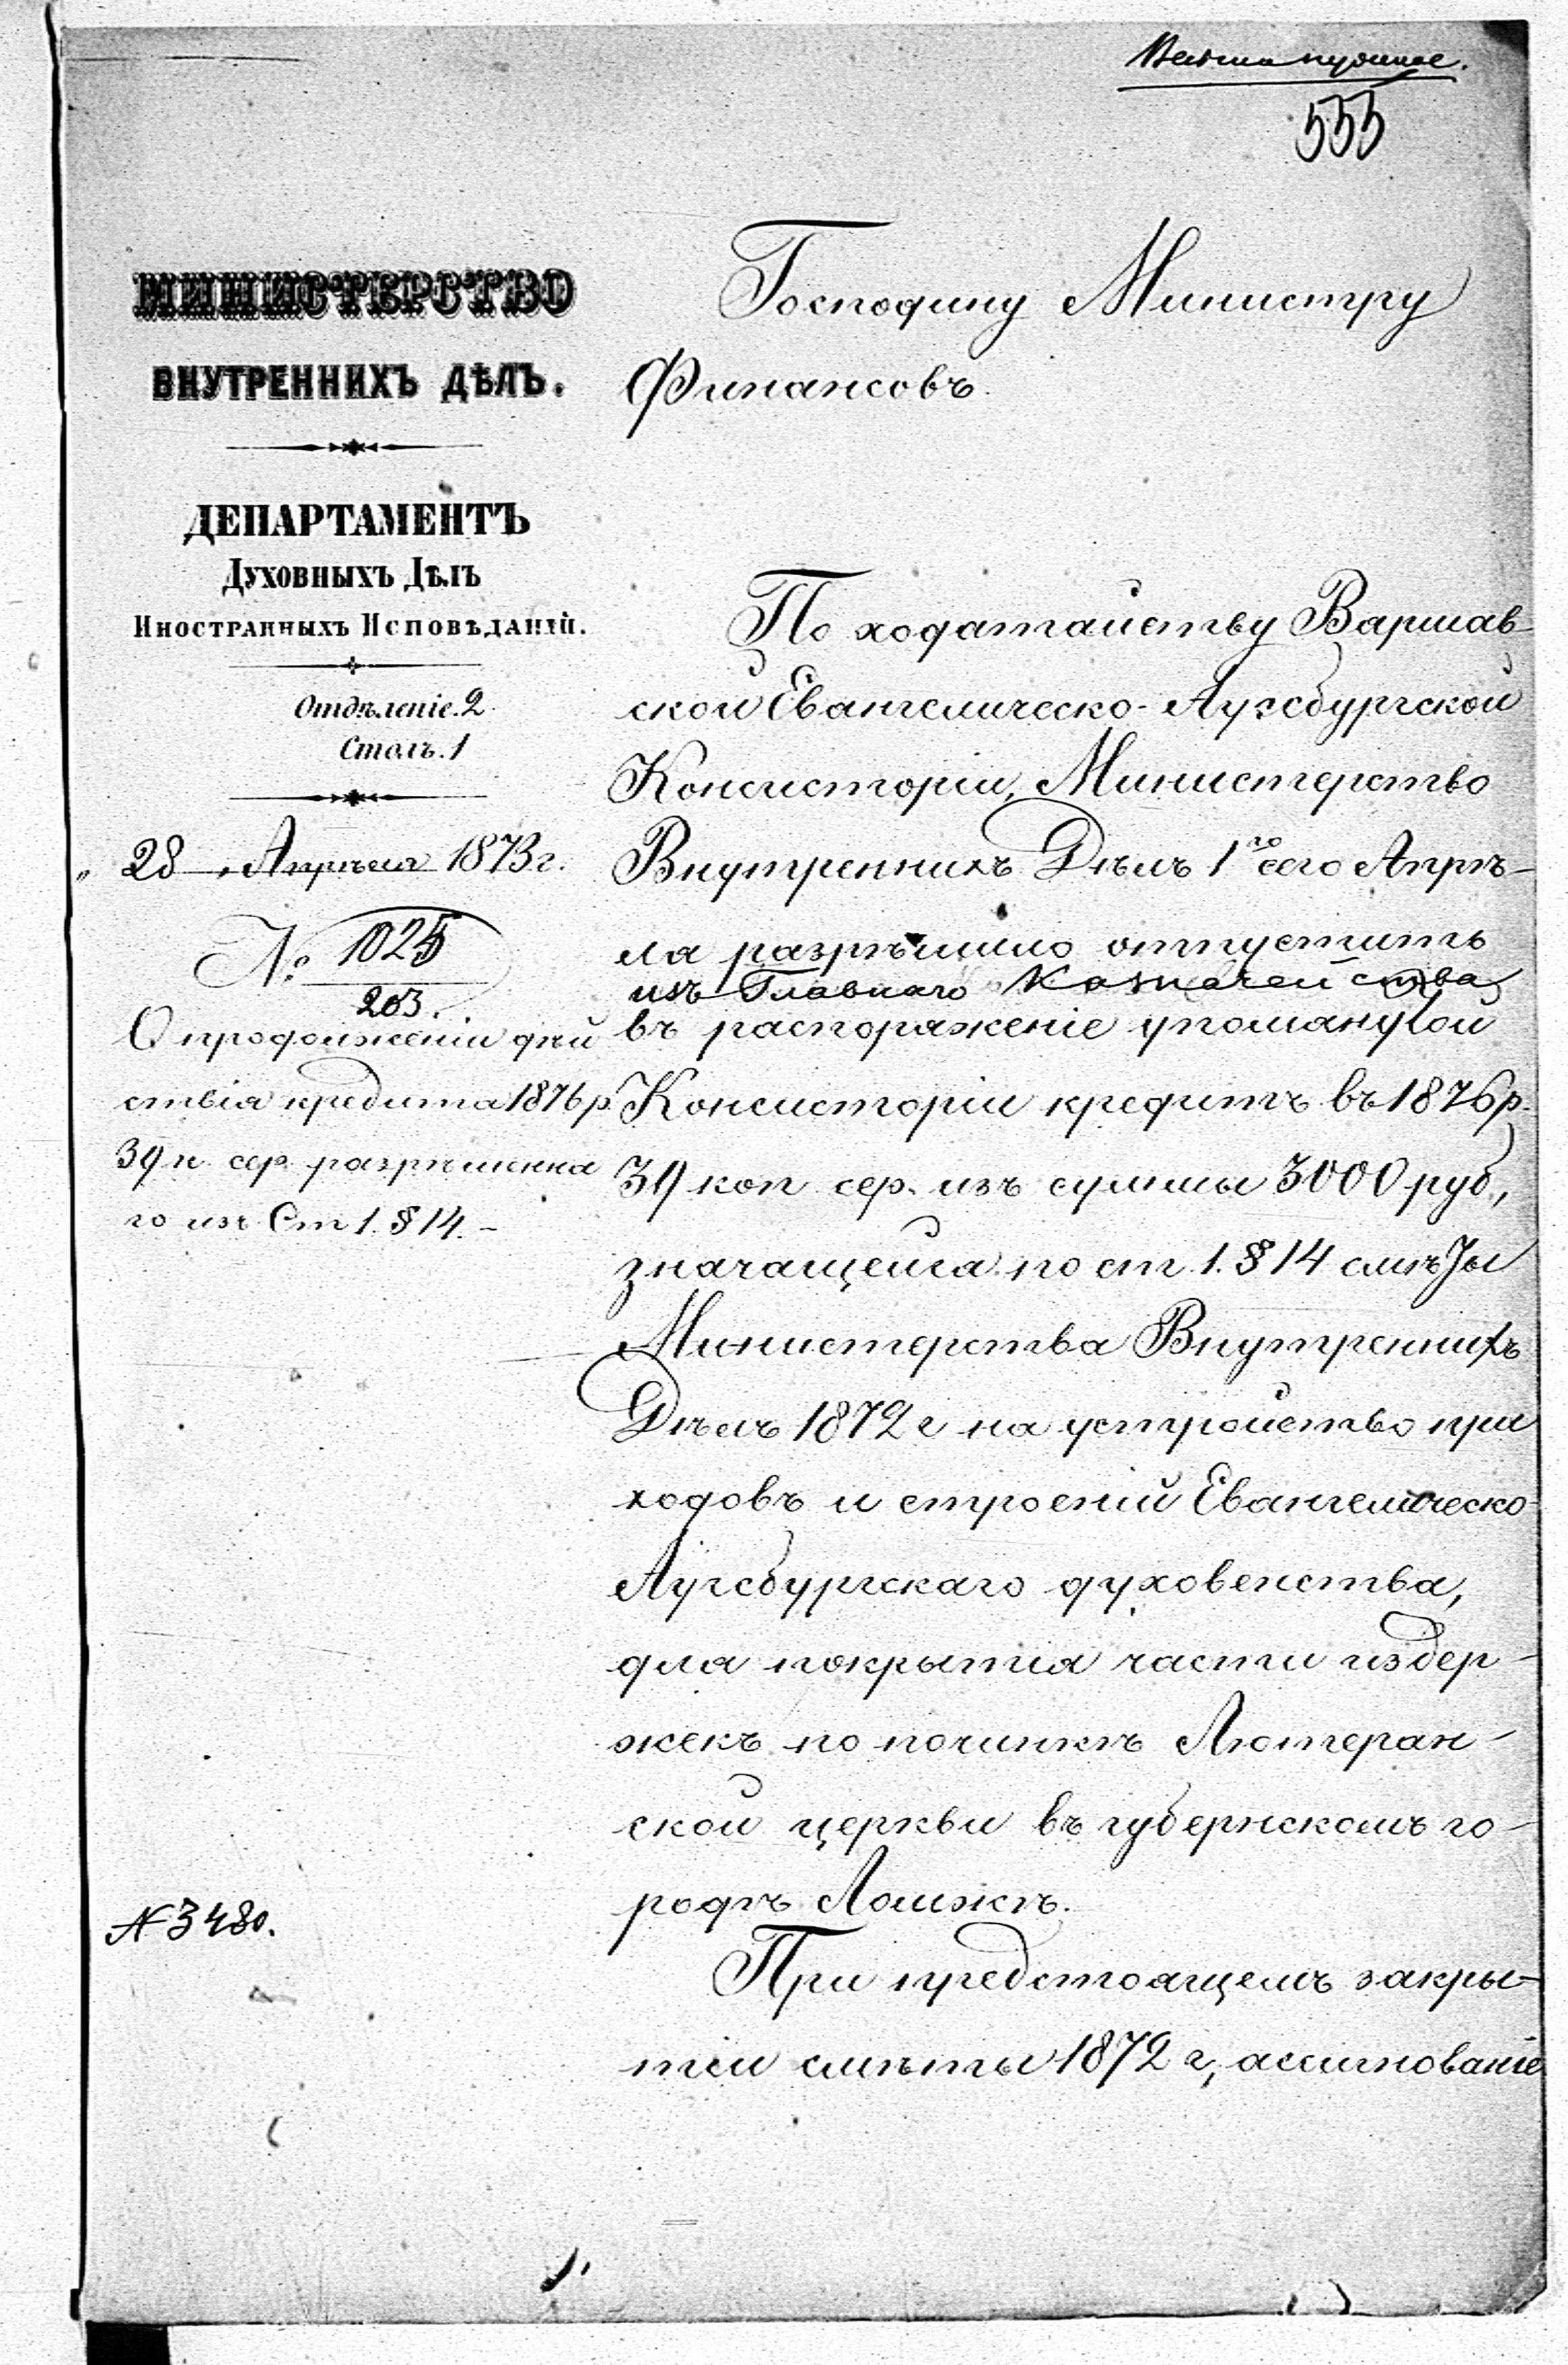 Весьма нужное.
555
МИНИСТЕРСТВО
ВНУТРЕННИХЪ ДѢЛЪ.
ДЕПАРТАМЕНТЪ
Духовныхъ Дѣлъ
Иностранныхъ Исповѣданій.
Отдѣленіе. 2
Столъ. 1
„ 28 „ Апрѣля 1873 г.
№ 1025
203.
О продолженіи дѣй
ствія кредита 1876 р.
39 к. сер. разрѣшенна
го изъ Ст 1. § 14. –
№ 3480.
Господину Министру
Финансовъ.
По ходатайству Варшав-
ской Евангелическо-Аугсбургской
Консисторіи, Министерство
Внутреннихъ Дѣлъ 1го сего Апрѣ-
ля разрѣшило отпустить
изъ Главнаго Казначейства
въ распоряженіе упомянутой
Консисторіи кредитъ въ 1876 р.
39 коп сер. изъ суммы 3000 руб,
значащейся по ст. 1. § 14 смѣты
Министерства Внутреннихъ
Дѣлъ 1872 г на устройство при
ходовъ и строеній Евангелическо-
Аугсбургскаго духовенства,
для покрытія части издер-
жекъ по починкѣ Лютеран-
ской церкви въ губернскомъ го-
родѣ Ломжѣ.
При предстоящемъ закры-
тіи смѣты 1872 г, ассигнованіе